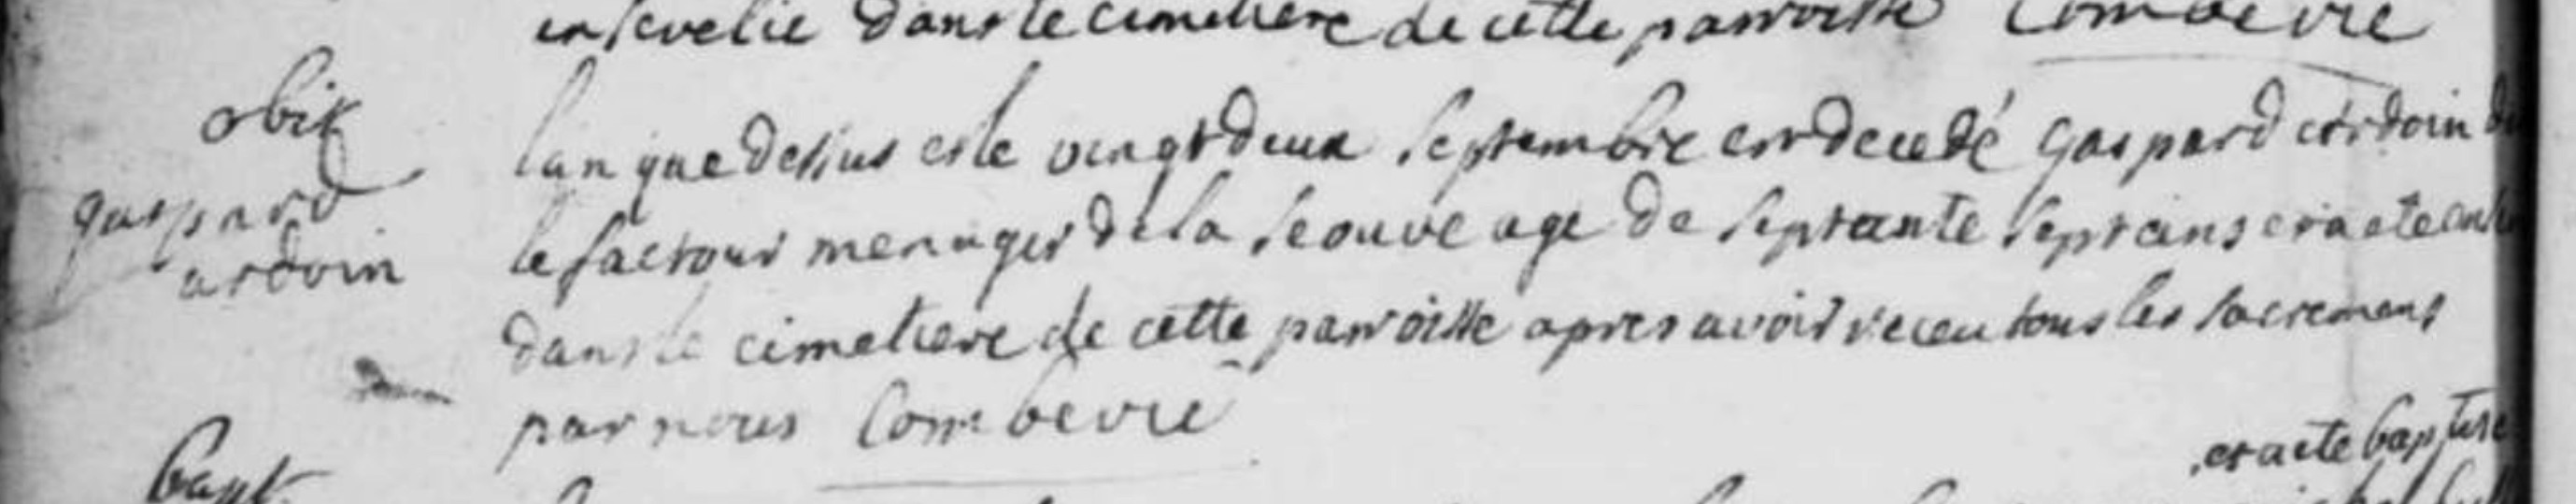 ensevelie dans le cimetiere de cette parroisse Combevie
obit
gaspard
ardoin
lan que dessus et le vingt deux septembre est decedé gaspard ardoin
le factour menager de la seouve age de septante sept ans et a ete
dans le cimetiere de cette parroisse apres avoir receu tous les sacremens
par nous Combevie
et a ete baptise
bapt